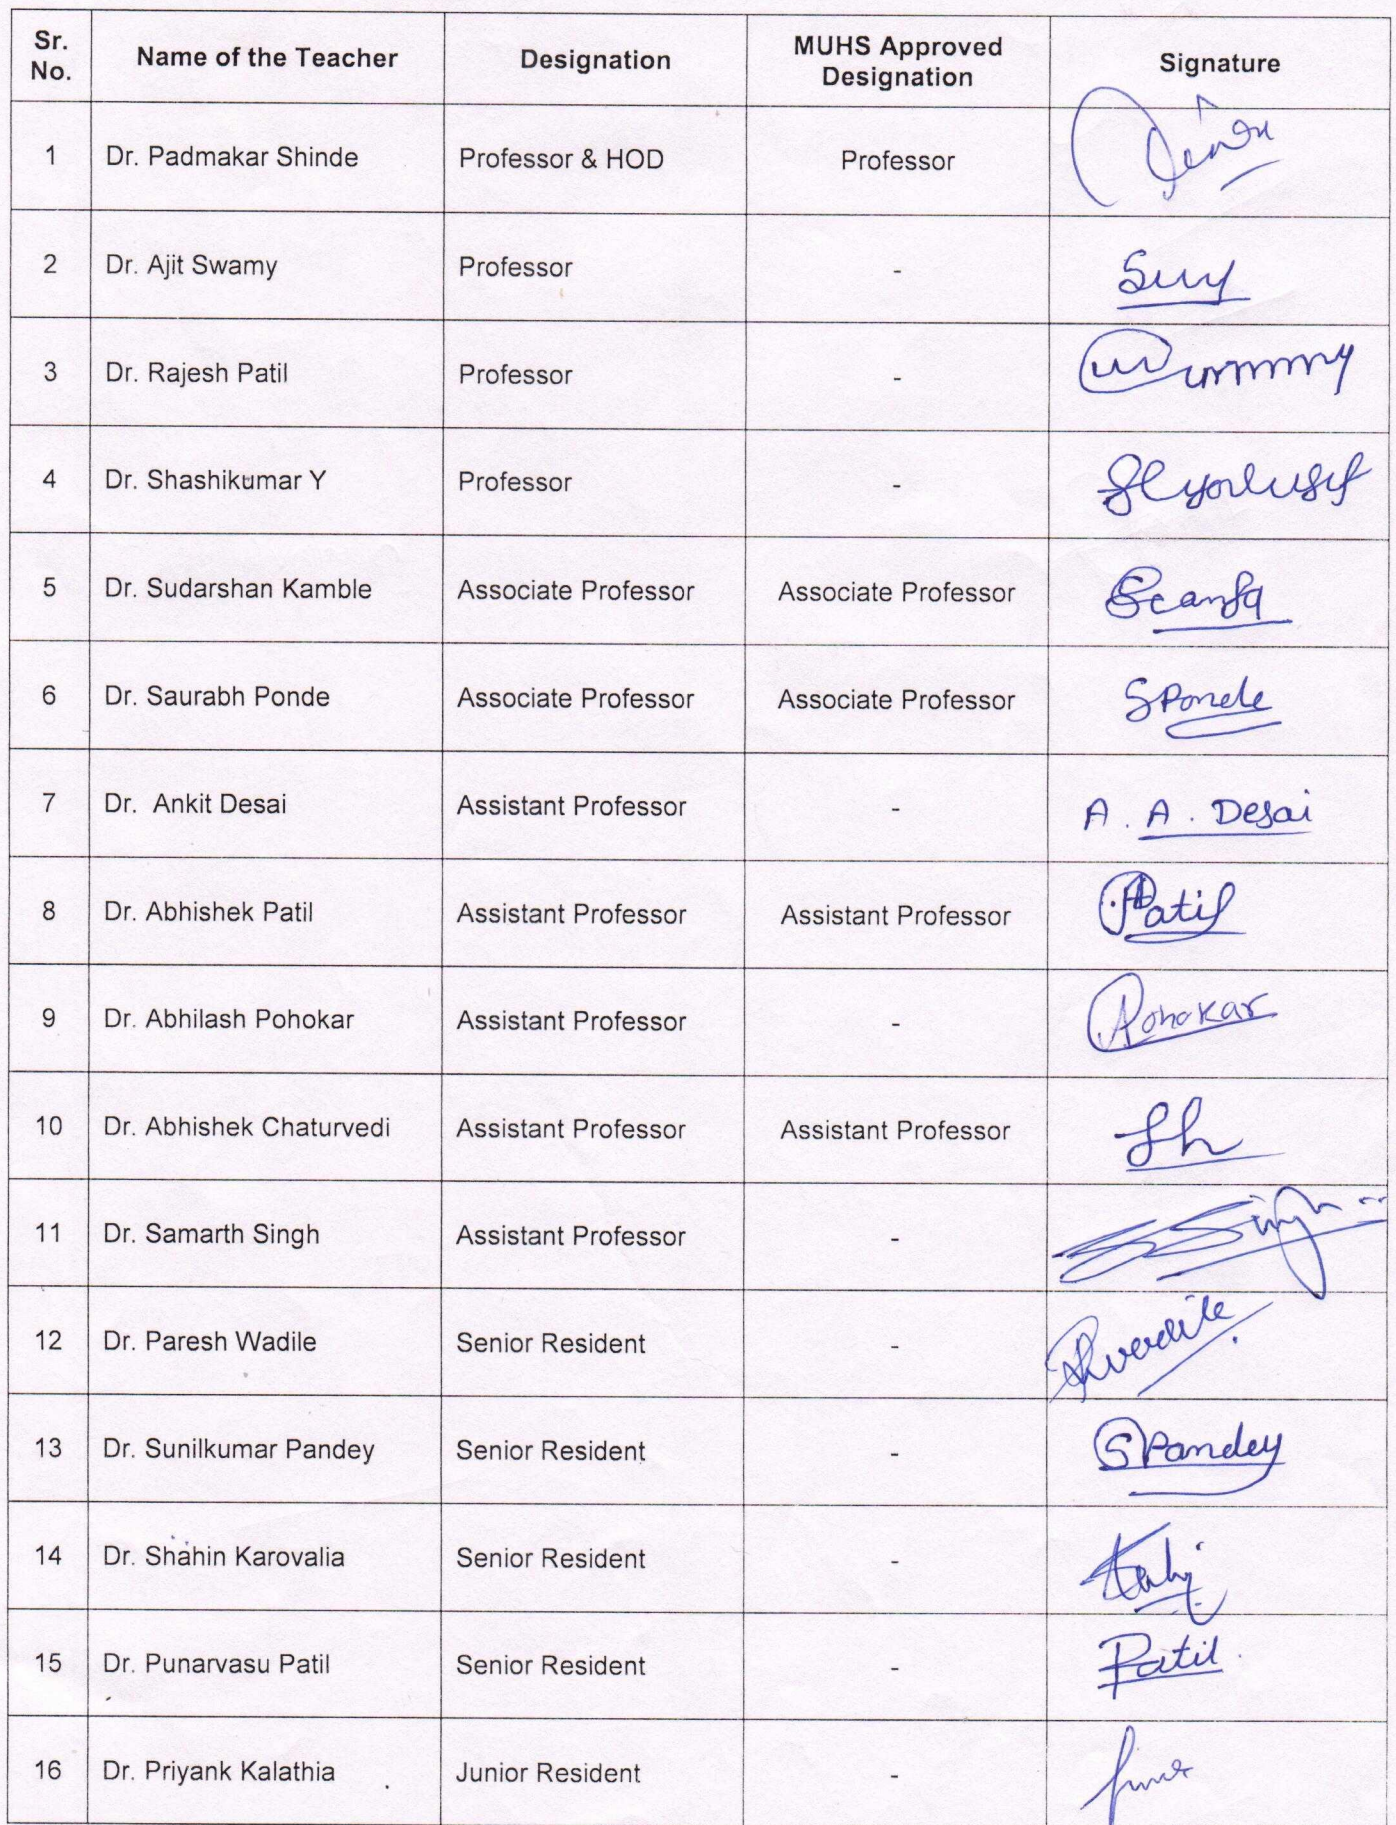 Sr. No. Name of the Teacher Designation MUHS Approved Designation Signature
1 Dr. Padmakar Shinde Professor & HOD Professor
2 Dr. Ajit Swamy Professor -
3 Dr. Rajesh Patil Professor -
4 Dr. Shashikumar Y Professor -
5 Dr. Sudarshan Kamble Associate Professor Associate Professor
6 Dr. Saurabh Ponde Associate Professor Associate Professor SPonde
7 Dr. Ankit Desai Assistant Professor - A. A. Desai
8 Dr. Abhishek Patil Assistant Professor Assistant Professor Patil
9 Dr. Abhilash Pohokar Assistant Professor - Pohokar
10 Dr. Abhishek Chaturvedi Assistant Professor Assistant Professor
11 Dr. Samarth Singh Assistant Professor - Singh
12 Dr. Paresh Wadile Senior Resident -
13 Dr. Sunilkumar Pandey Senior Resident - SPandey
14 Dr. Shahin Karovalia Senior Resident -
15 Dr. Punarvasu Patil Senior Resident - Patil
16 Dr. Priyank Kalathia Junior Resident -